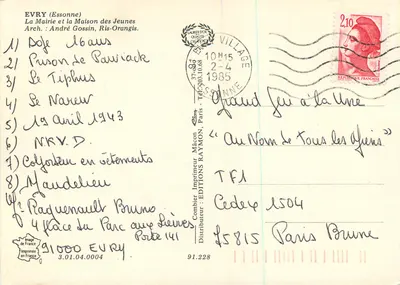 EVRY (Essonne)
La Mairie et la Maison des Jeunes
Arch. : André Gossin, Ris-Orangis.
1) Dofe 16 ans
2) Prison de Pawiack
3) Le Typhus
4) Le Narew
5) 19 avril 1943
6) N.K.V.D.
7) Colporteur en vêtements
8) Mandelieu
Raguenault Bruno
4 Place du Parc aux Lièvres
Porte 141
91000 EVRY
3.01.04.0004
91.228
Combier Imprimeur Mâcon
Distributeur : EDITIONS RAYMON, Paris - Tél.
VILLAGE
10H15
2-4
1985
ESSONNE
2,10
Grand Jeu à la Une
"Au Nom de Tous les Miens"
TF1
Cedex 1504
75815 Paris Brune